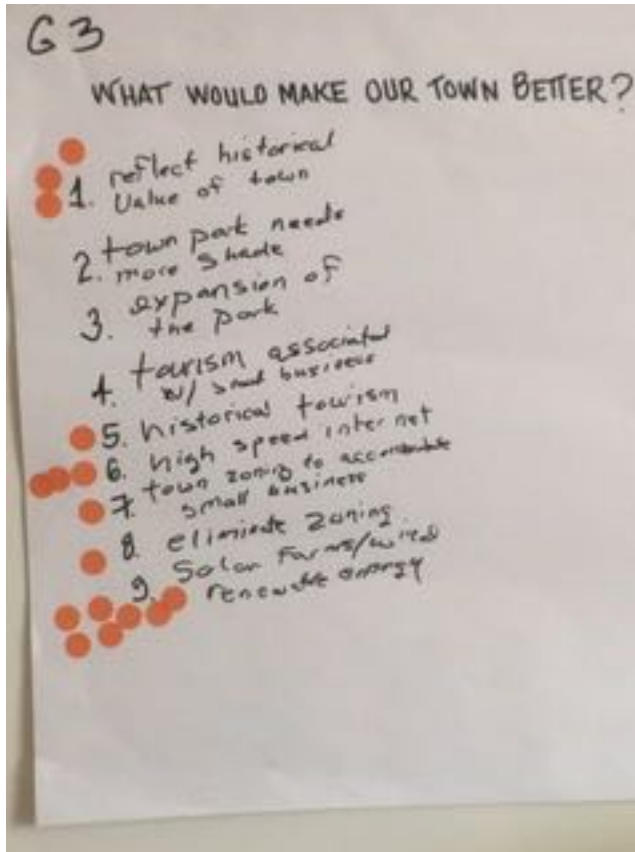 G3
WHAT WOULD MAKE OUR TOWN BETTER?
1. reflect historical
Value of town
2. town park needs
more shade
3. expansion of
the park
4. tourism associated
w/ small business
5. historical tourism
6. high speed internet
7. town zoning to accomodate
small business
8. eliminate zoning
9. Solar Farms/wind
renewable energy